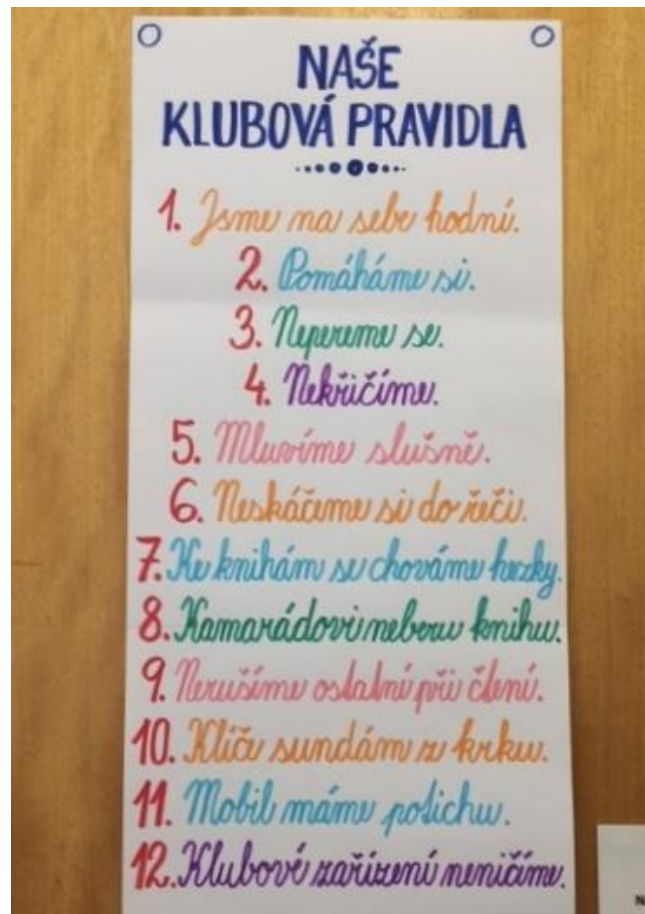 NAŠE
KLUBOVÁ PRAVIDLA
1. Jsme na sebe hodní.
2. Pomáháme si.
3. Nepereme se.
4. Nekřičíme.
5. Mluvíme slušně.
6. Neskáčeme si do řeči.
7. Ke knihám se chováme hezky.
8. Kamarádovi neberu knihu.
9. Nerušíme ostatní při čtení.
10. Klíče sundám z krku.
11. Mobil máme potichu.
12. Klubové zařízení neničíme.
N